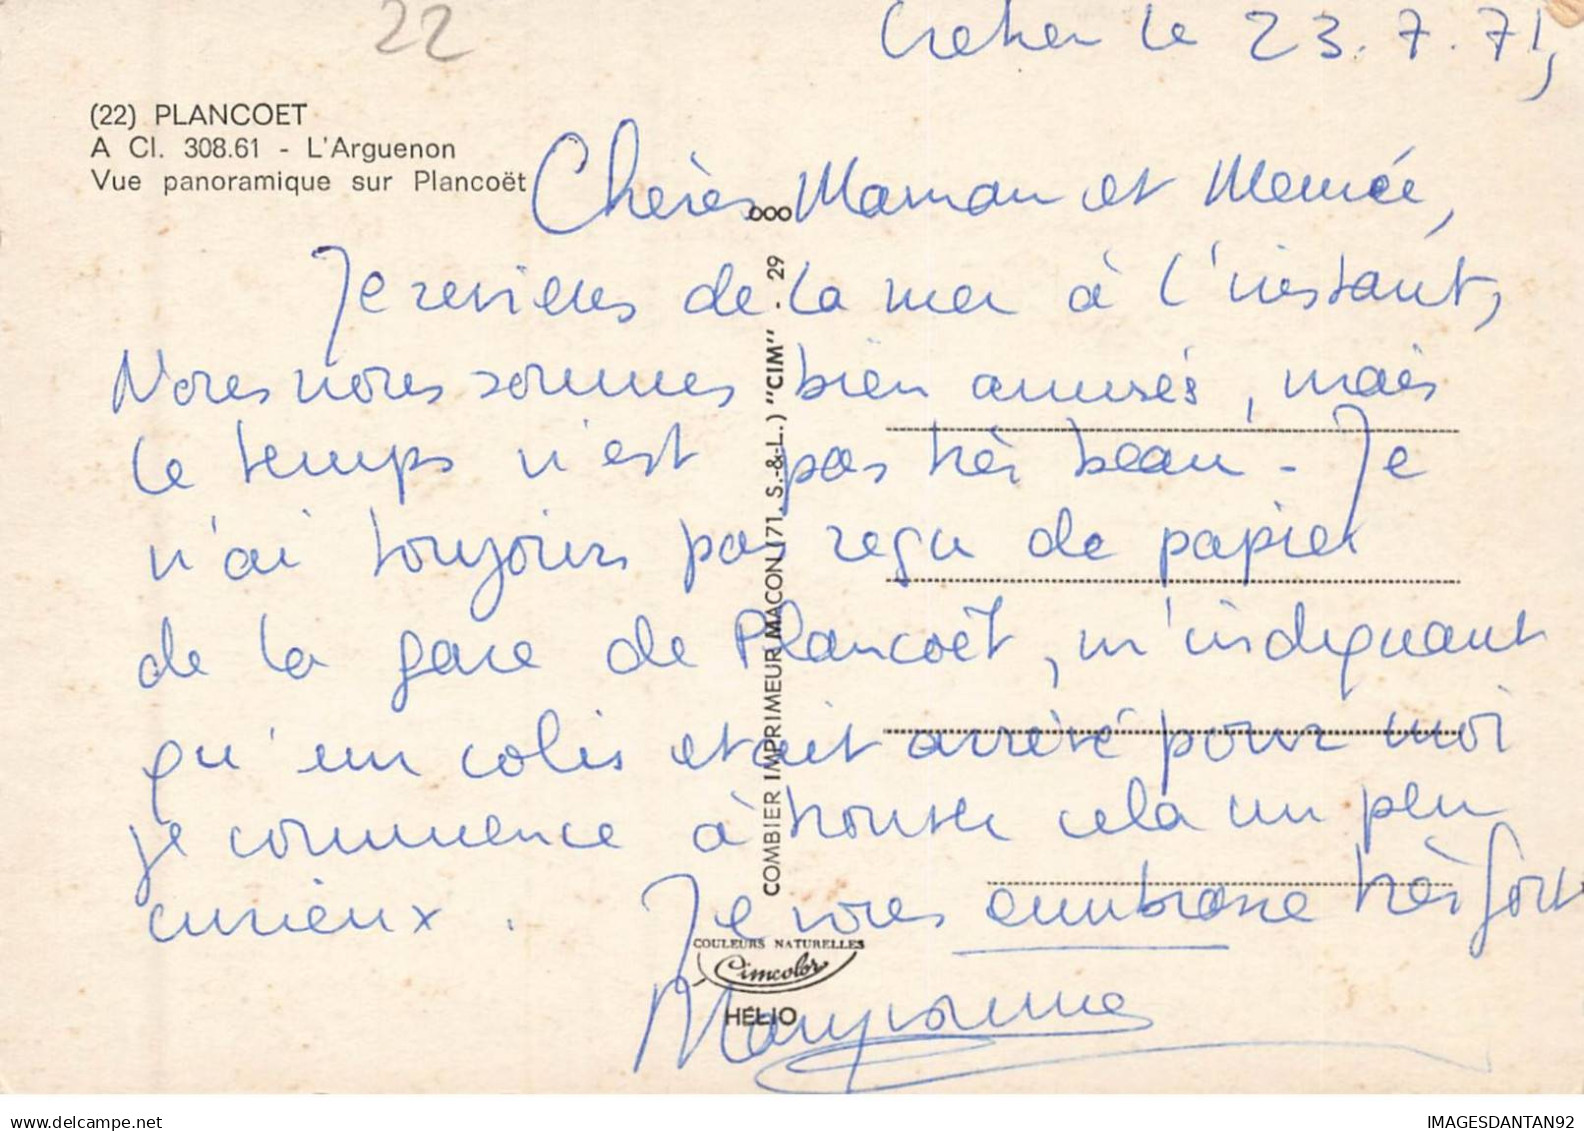 22
Crehen le 23.7.71,
(22) PLANCOET
A Cl. 308.61 - L'Arguenon
Vue panoramique sur Plancoët
Chères Maman et Mémée,
Je reviens de la mer à l'instant,
Nous nous sommes bien amusés, mais
le temps n'est pas très beau - Je
n'ai toujours pas reçu de papier
de la gare de Plancoët, m'indiquant
qu'un colis etait arrivé pour moi
je commence à trouver cela un peu
curieux. Je vous embrasse très fort
Maryvonne
COMBIER IMPRIMEUR MACON (71. S.-&-L.) "CIM" - 29 000
COULEURS NATURELLES
Cimcolor
HÉLIO
www.delcampe.net
IMAGESDANTAN92